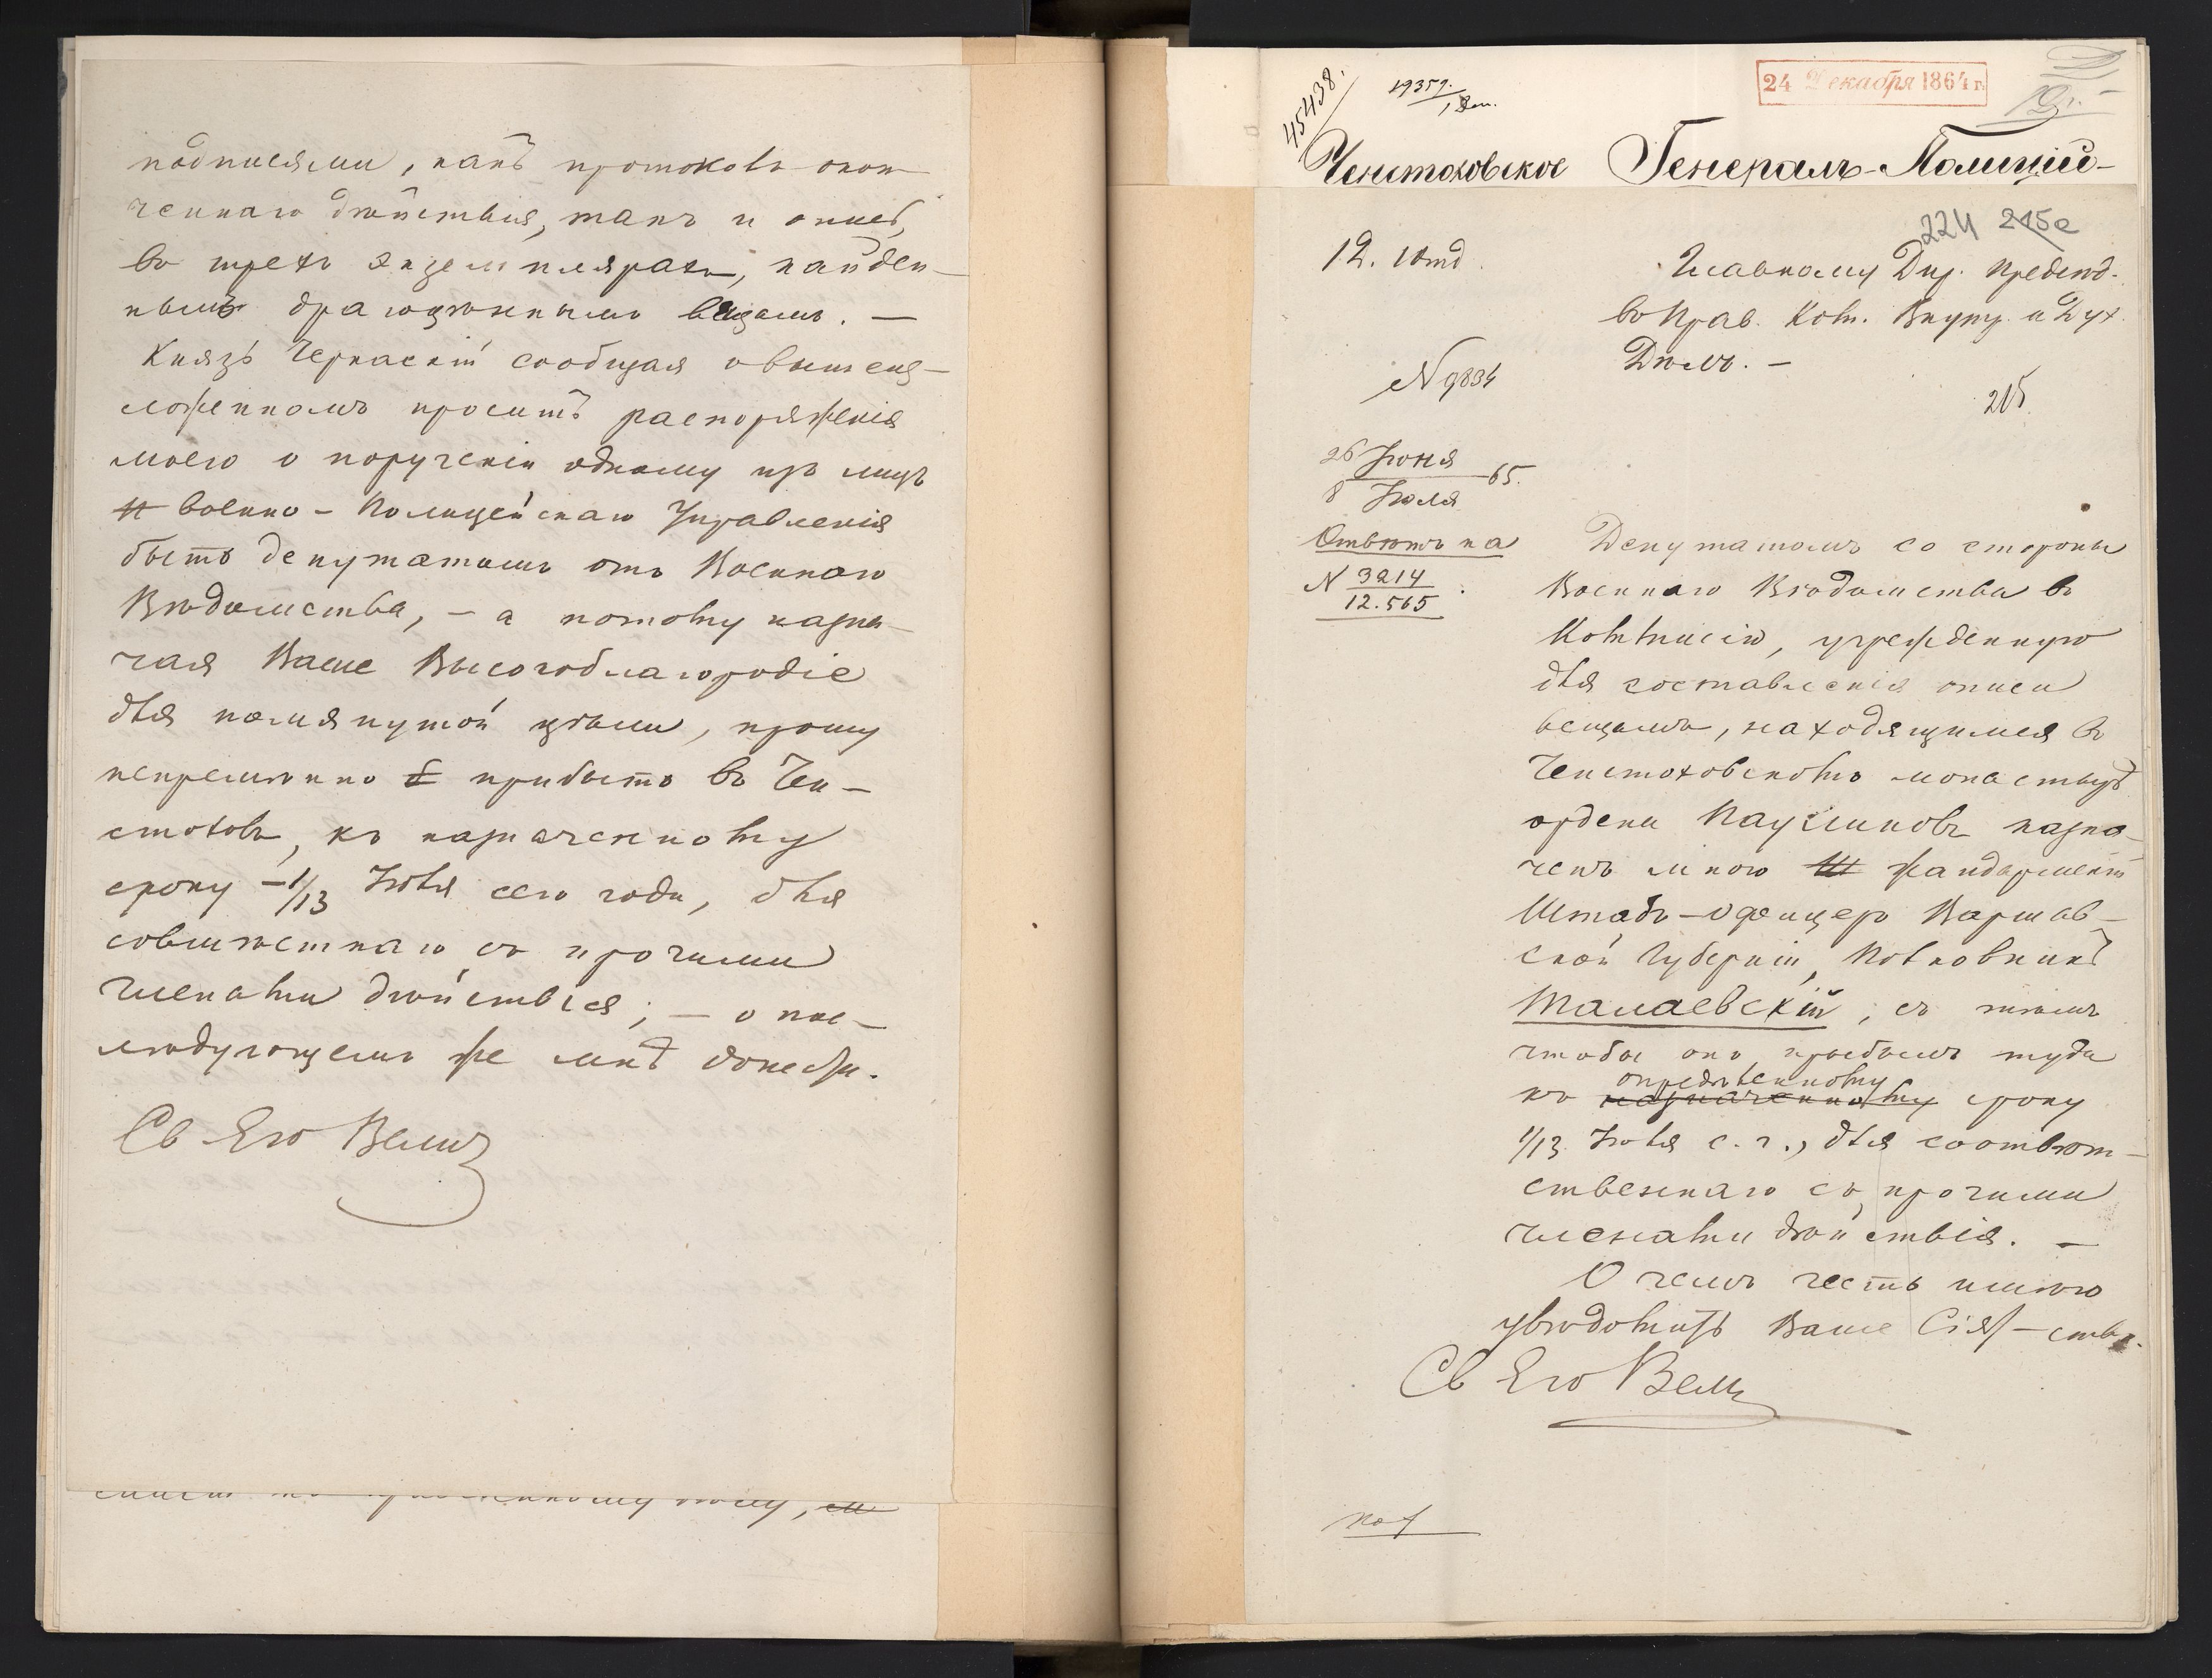 подписями, какъ протоколъ окон-
ченнаго дѣйствія, такъ и опись,
въ трехъ экземплярахъ, найден-
нымъ драгоцѣннымъ вещамъ. —
Князь Черкаскій сообщая о вышеиз-
ложенномъ проситъ распоряженія
моего о порученіи одному изъ лицъ
Военно-Полицейскаго Управленія
быть депутатомъ отъ Военнаго
Вѣдомства, – а потому назна-
чая Ваше Высокоблагородіе
для помянутой цѣли, прошу
непремѣнно прибыть въ Чен-
стоховъ, къ назначенному
сроку – 1/13 Іюля сего года, для
совмѣстнаго съ прочими
членами дѣйствія; – о пос-
лѣдующемъ же мнѣ донести.
Св Его Велич
45438.
19359.
24 Декабря 1864 г.
Ченстоховское Генералъ-Полицій-
224 215 е
12. Отд.
Главному Дир. Предсѣд.
въ Прав. Ком. Внутр. и Дух.
Дѣлъ. –
N 9834
215
26 Іюня
8 Іюля 65.
Отвѣтъ на
N 3214
12.565
Депутатомъ со стороны
Военнаго Вѣдомства въ
Коммисію, учрежденную
для составленія описи
вещамъ, находящимся въ
Ченстоховскомъ монастырѣ
ордена Паулиновъ назна-
ченъ мною Жандармскій
Штабъ-офицеръ Варшав-
ской Губерніи, Полковникъ
Талаевскій, съ тѣмъ
чтобы онъ прибылъ туда
опредѣленному
къ назначенному сроку
1/13 Іюля с. г., для соотвѣт-
ственнаго съ прочими
членами дѣйствія. –
О чемъ честь имѣю
увѣдомить Ваше Сіят-ство.
Св Его Велич